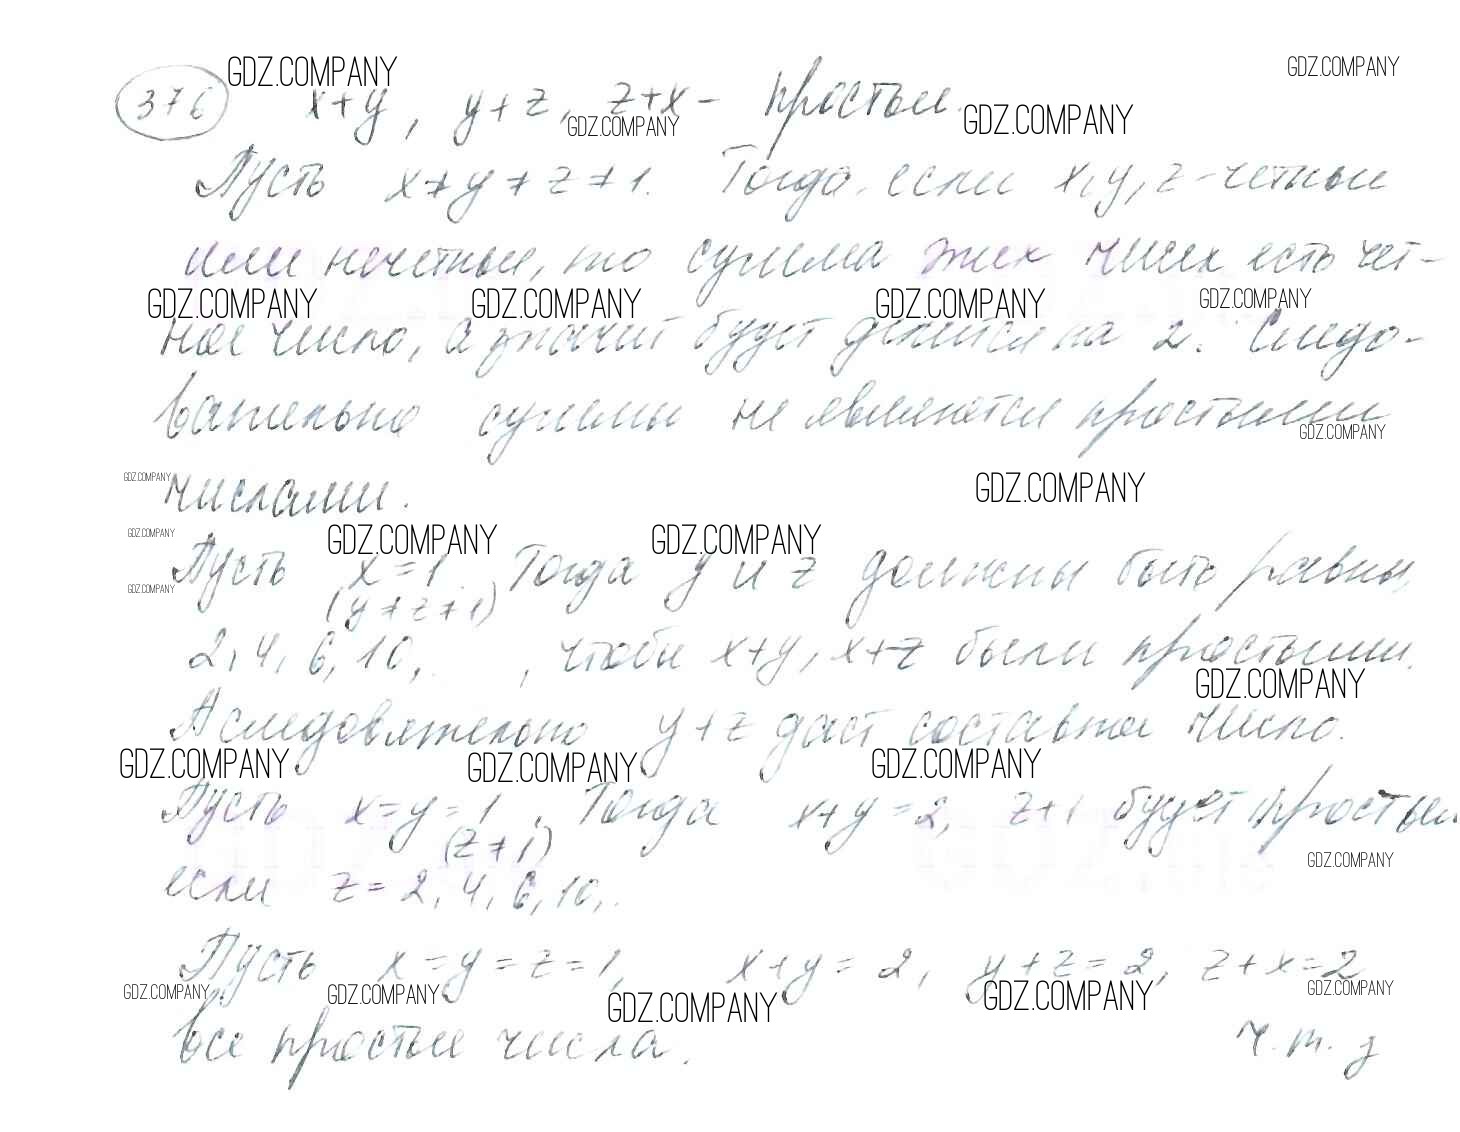 GDZ.COMPANY GDZ.COMPANY
376 x+y, y+z, z+x - простые.
GDZ.COMPANY GDZ.COMPANY
Пусть x≠y≠z≠1. Тогда если x, y, z - четные
или нечетные, то сумма этих чисел есть чет-
GDZ.COMPANY GDZ.COMPANY GDZ.COMPANY GDZ.COMPANY
ное число, а значит будет делится на 2. Следо-
вательно суммы не являются простыми
GDZ.COMPANY
GDZ.COMPANY GDZ.COMPANY
числами.
GDZ.COMPANY GDZ.COMPANY GDZ.COMPANY
Пусть x=1. Тогда y и z должны быть равны
GDZ.COMPANY
(y≠z≠1)
2, 4, 6, 10, , чтобы x+y, x+z были простыми.
GDZ.COMPANY
А следовательно y+z даст составное число.
GDZ.COMPANY GDZ.COMPANY GDZ.COMPANY
Пусть x=y=1. Тогда x+y=2, z+1 будет простым
(z≠1)
GDZ.COMPANY
если z=2, 4, 6, 10,.
Пусть x=y=z=1, x+y=2, y+z=2, z+x=2
GDZ.COMPANY GDZ.COMPANY GDZ.COMPANY GDZ.COMPANY GDZ.COMPANY
все простые числа. ч.т.д